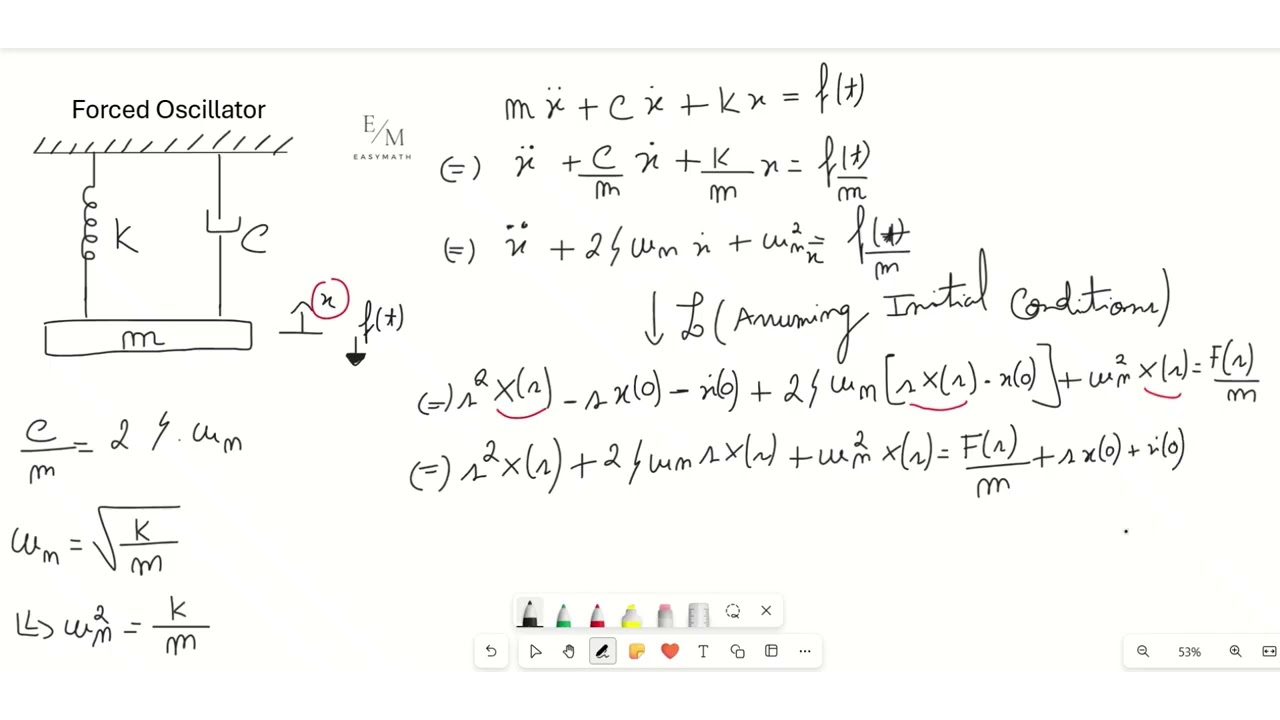 Forced Oscillator
E/M
EASYMATH
K
C
m
x
f(t)
c/m = 2 ζ . ωn
ωn = √(k/m)
↳ ωn² = k/m
mẍ + cẋ + kx = f(t)
(=) ẍ + c/m ẋ + k/m x = f(t)/m
(=) ẍ + 2ζωn ẋ + ωn² x = f(t)/m
↓ ℒ (Assuming Initial Conditions)
(=) s² X(s) - s x(0) - ẋ(0) + 2ζωn [s X(s) - x(0)] + ωn² X(s) = F(s)/m
(=) s² X(s) + 2ζωn s X(s) + ωn² X(s) = F(s)/m + s x(0) + ẋ(0)
T
53%